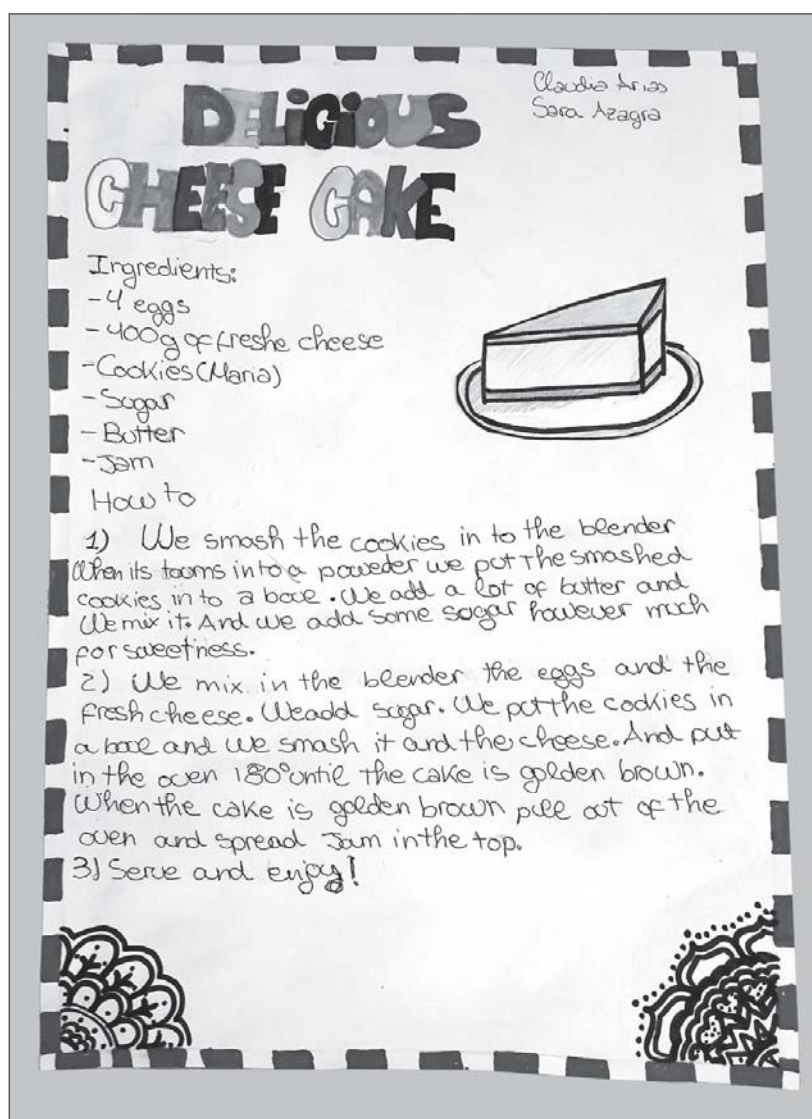 DELiCiOUS
CHEESE CAKE
Claudia Arias
Sara Azagra
Ingredients:
-4 eggs
-400g of freshe cheese
-Cookies (Maria)
-Sugar
-Butter
-Jam
How to
1) We smash the cookies in to the blender
When its toorns into a poweder we put the smashed
cookies in to a bowe. We add a lot of butter and
We mix it. And we add some sogar however much
for sweetness.
2) We mix in the blender the eggs and the
fresh cheese. We add sugar. We put the cookies in
a bowe and we smash it and the cheese. And put
in the oven 180° until the cake is golden brown.
When the cake is golden brown pull out of the
oven and spread Jam in the top.
3) Serve and enjoy!